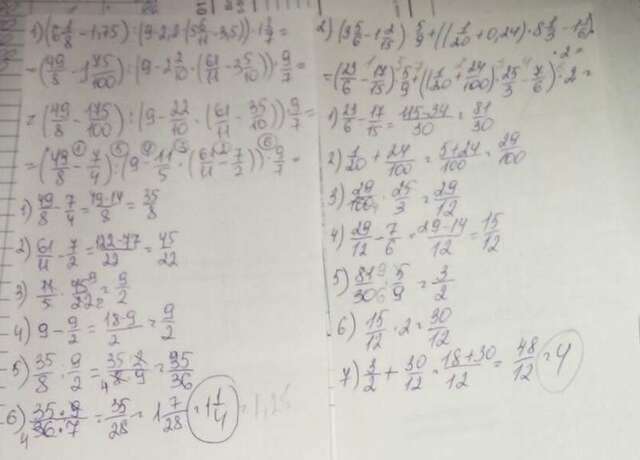 1) (6 1/8 - 1,75) : (9 - 2,2 · (5 6/11 - 3,5)) · 1 2/7 =
= (49/8 - 1 75/100) : (9 - 2 2/10 · (61/11 - 3 5/10)) · 9/7 =
= (49/8 - 175/100) : (9 - 22/10 · (61/11 - 35/10)) · 9/7 =
= (49/8 - 7/4) : (9 - 11/5 · (61/11 - 7/2)) · 9/7 =
1) 49/8 - 7/4 = 49-14/8 = 35/8
2) 61/11 - 7/2 = 122-77/22 = 45/22
3) 11/5 · 45/22 = 9/2
4) 9 - 9/2 = 18-9/2 = 9/2
5) 35/8 : 9/2 = 35·2/8·9 = 35/36
6) 35·9/36·7 = 35/28 = 1 7/28 = 1 1/4 = 1,25
2) (3 5/6 - 1 2/15) · 5/9 + ((1/20 + 0,24) · 8 1/3 - 1 1/6) · 2 =
= (23/6 - 17/15) · 5/9 + ((1/20 + 24/100) · 25/3 - 7/6) · 2 =
1) 23/6 - 17/15 = 115-34/30 = 81/30
2) 1/20 + 24/100 = 5+24/100 = 29/100
3) 29/100 · 25/3 = 29/12
4) 29/12 - 7/6 = 29-14/12 = 15/12
5) 81/30 · 5/9 = 3/2
6) 15/12 · 2 = 30/12
7) 3/2 + 30/12 = 18+30/12 = 48/12 = 4